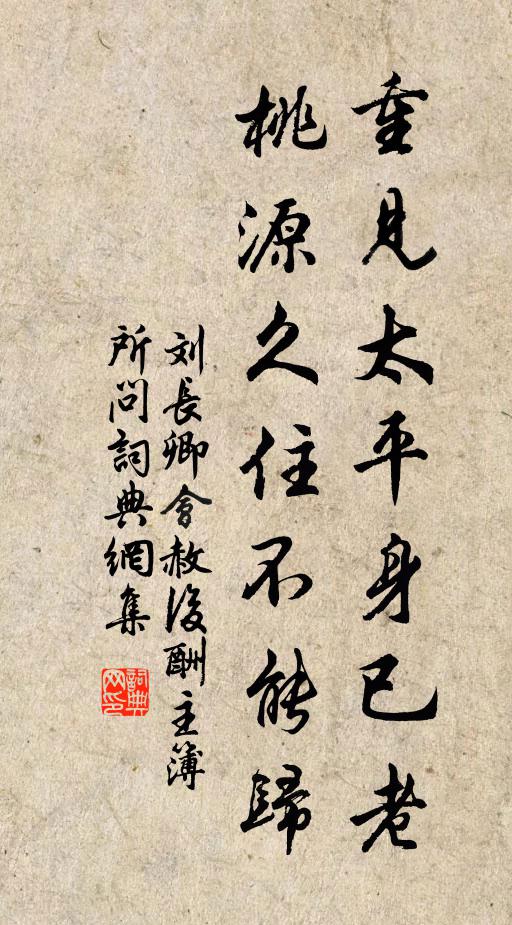 重見太平身已老
桃源久住不能歸
刘長卿會赦後酬主簿
所问詞典網集
詞典网印